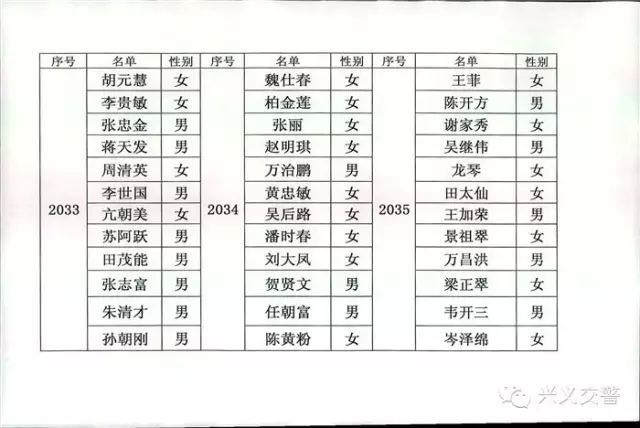 序号 名单 性别 序号 名单 性别 序号 名单 性别
胡元慧 女 魏仕春 女 王菲 女
李贵敏 女 柏金莲 女 陈开方 男
张忠金 男 张丽 女 谢家秀 女
蒋天发 男 赵明琪 女 吴继伟 男
周清英 女 万治鹏 男 龙琴 女
李世国 男 黄忠敏 女 田太仙 女
2033 亢朝美 女 2034 吴后路 女 2035 王加荣 男
苏阿跃 男 潘时春 女 景祖翠 女
田茂能 男 刘大凤 女 万昌洪 男
张志富 男 贺贤文 男 梁正翠 女
朱清才 男 任朝富 男 韦开三 男
孙朝刚 男 陈黄粉 女 岑泽绵 女
兴义交警